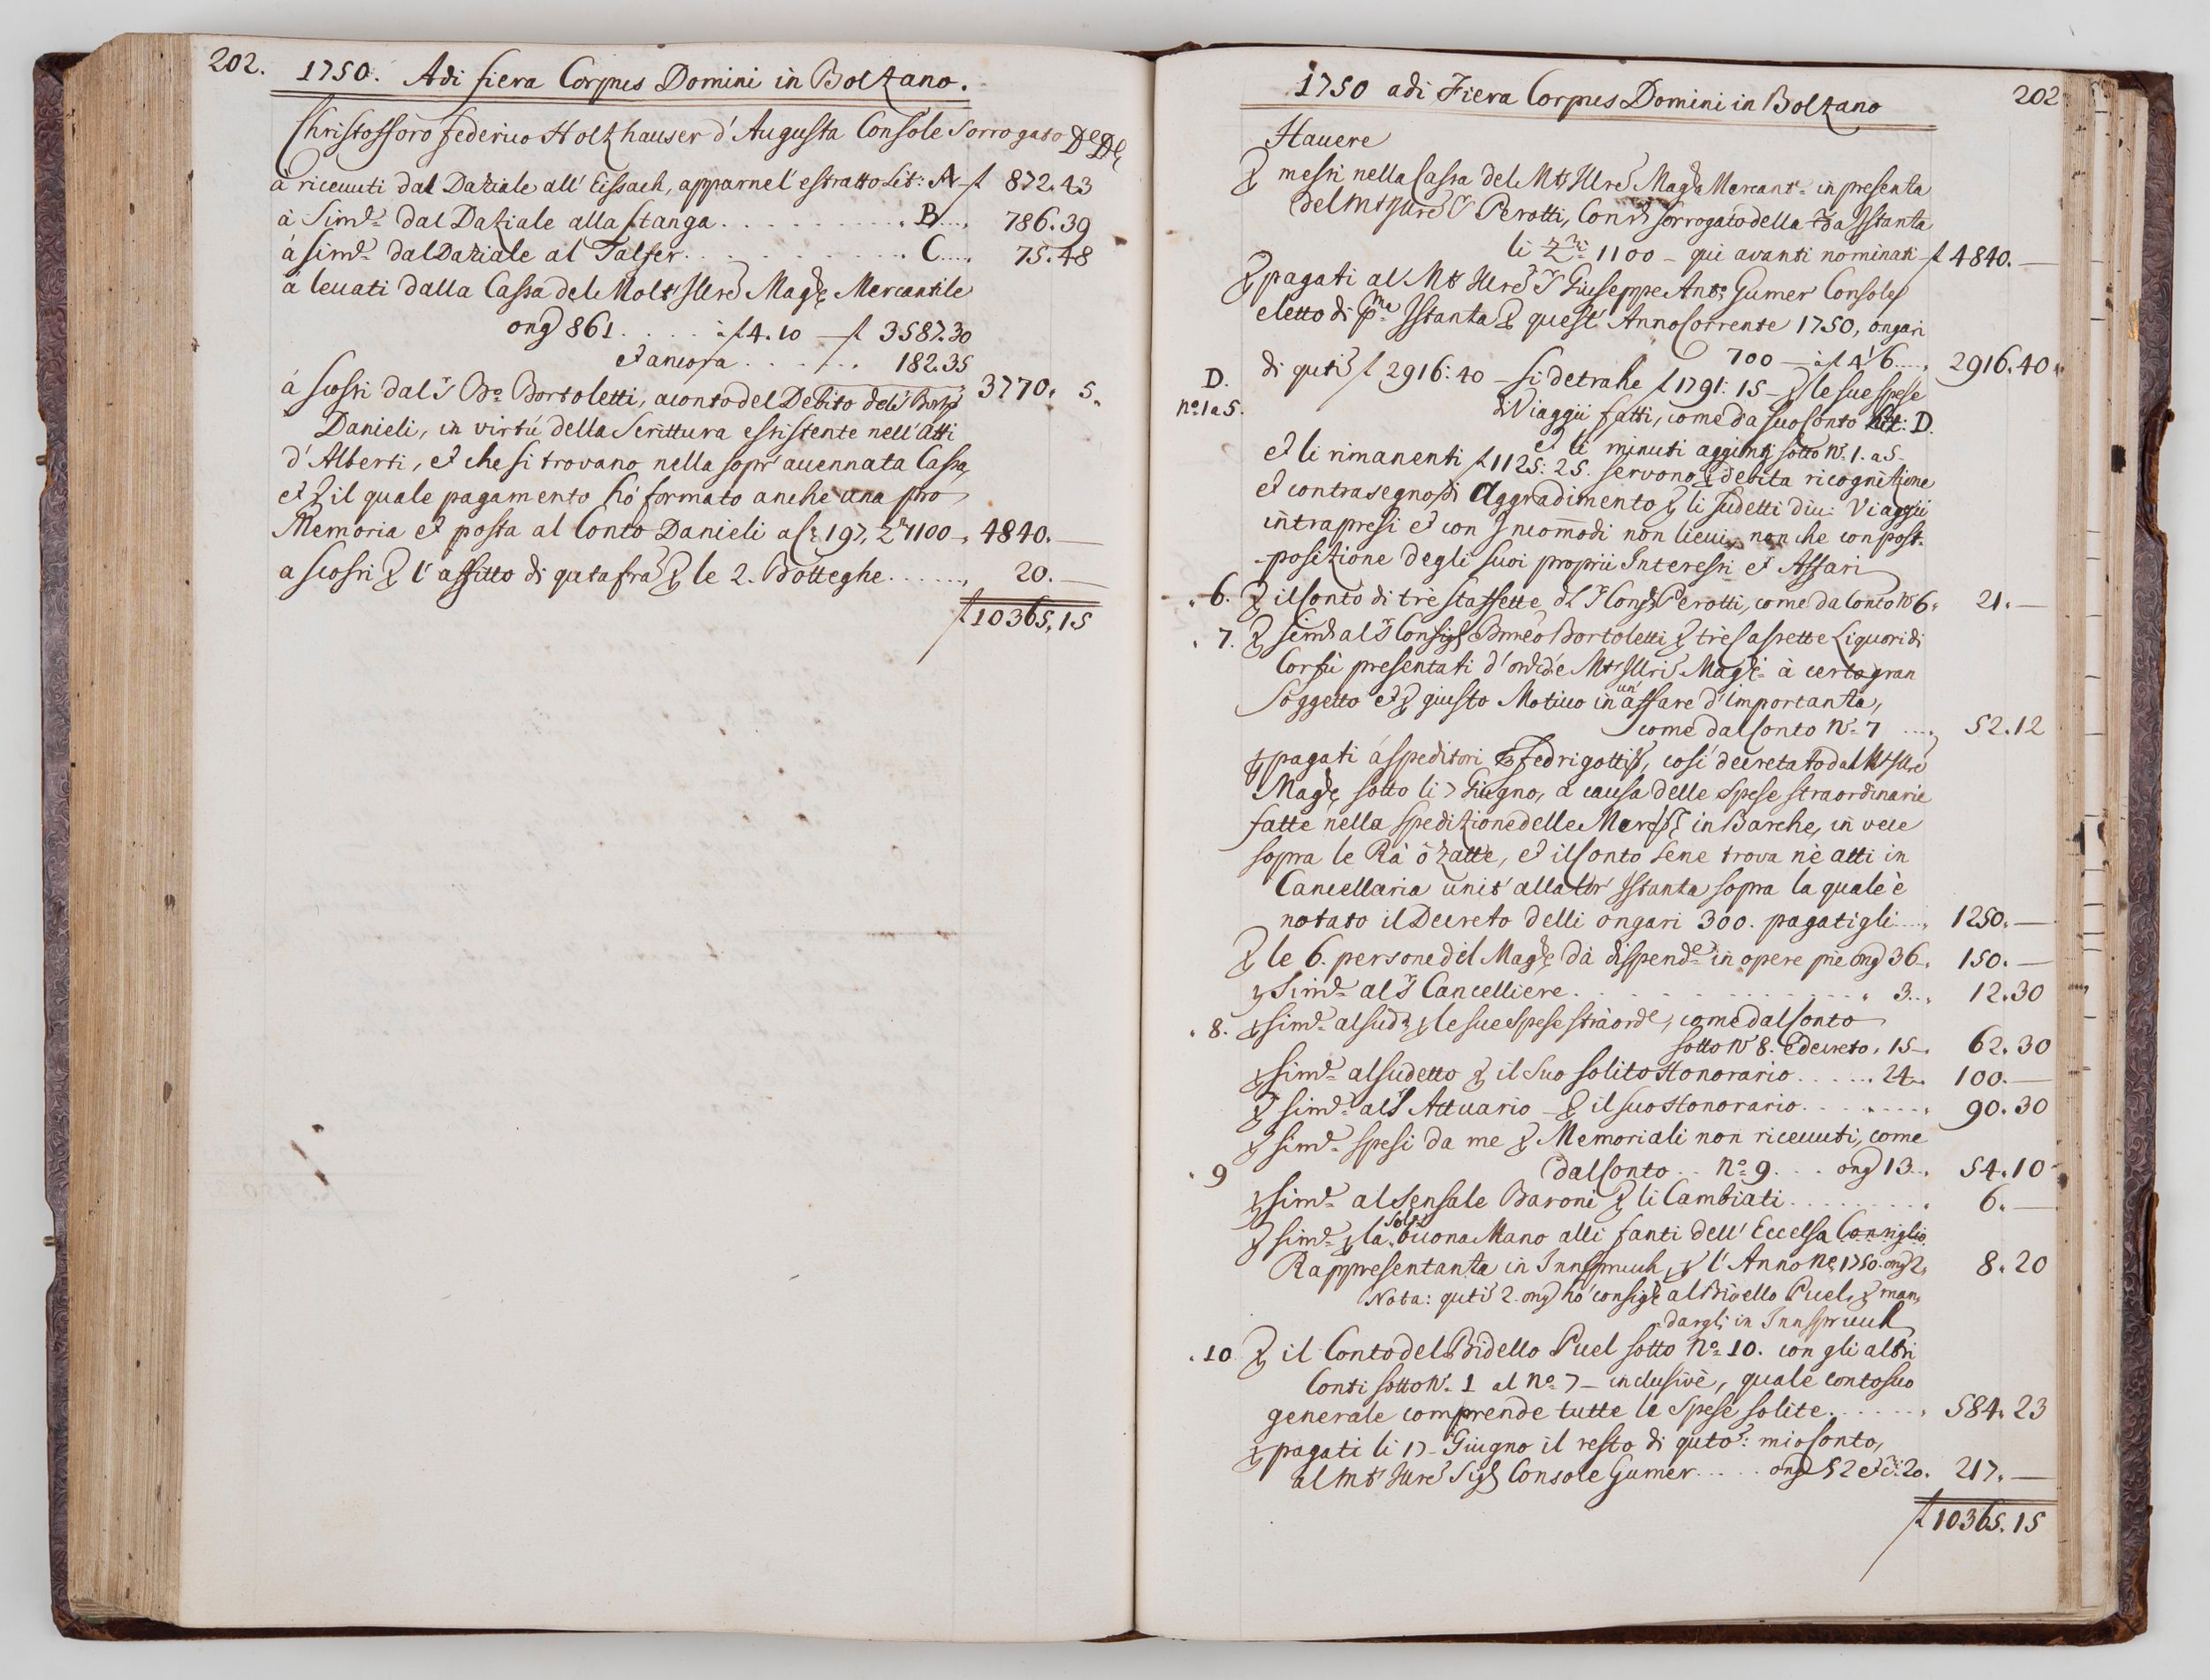 202. 1750. Adi fiera Corpus Domini in Bolzano.
Christofforo federico Holzhauser d'Augusta Console Sorrogato
à riceuuti dal Daziale all' Eissach, appar nel' estratto Lit: A f 872.43
à Simˡᵉ dal Daziale alla Stanga . . . . B . . . 786.39
à simˡᵉ dal Daziale al Talfer . . . . C . . . 75.48
à leuati dalla Cassa del Molt' Illre Magᵗᵒ Mercantile
ong 861 . . . . à f 4.10 — f 3587.30
et ancora . . . . 182.35
3770. 5.
à scossi dal Sʳ Bᵒ Bortoletti, a conto del Debito del Sʳ
Danieli, in virtú della Scrittura esistente nell' atti
d'Alberti, et che si trovano nella sopr' auennata Cassa,
et ꝑ il quale pagamento hó formato anche una pro
Memoria et posta al Conto Danieli a Cᵃ 197, Zⁿⁱ 1100 — 4840. —
a scossi ꝑ l'affitto di qᵗᵃ fra ꝑ le 2. Botteghe . . . . 20. —
f 10365,15
1750 adi Fiera Corpus Domini in Bolzano 202
Hauere
ꝑ messi nella Cassa del Mᵗᵒ Illre Magᵗᵒ Mercantᵉ in presenza
del Mᵗᵒ Illre Sʳ Perotti, Conˢ sorrogato della Istanza
li Zⁿⁱ 1100 — qui avanti nominati f 4840. —
ꝑ pagati al Mᵗᵒ Illre Sʳ Giuseppe Antᵒ Gumer Console
eletto di pᵐᵃ Istanza ꝑ quest' Anno Corrente 1750, ongari
700 — à f 4 . . 2916.40
D. di quti f 2916:40 — si detrahe f 1791:15 — ꝑ le sue spese
nᵒ 1 a 5. di Viaggii fatti, come da suo Conto Lit: D.
et li minuti aggionti sotto Nᵒ 1. a 5.
et li rimanenti f 1125:25. servono ꝑ debita ricognitione
et contrasegno di Aggradimento ꝑ li sudetti diu: Viaggii
intrapresi et con Incommodi non lieui, non che con post=
=posizione degli suoi proprii Interessi et Affari
6. ꝑ il Conto di trè Staffette del Sʳ Conˢ Perotti, come da Conto Nᵒ 6. 21. —
7. ꝑ simˡᵉ al Sʳ Consigˡ Bmeo Bortoletti ꝑ trè Cassette Liquori di
Corfù presentati d'ordᵉ de Mᵗᵒ Illre Magᵗᵒ à certo gran
Soggetto et ꝑ giusto Motiuo in un' affare d'importanza,
come dal Conto Nᵒ 7 . . . 52.12
ꝑ pagati á speditori Fedrigotti, cosí decretato dal Mᵗᵒ Illre
Magᵗᵒ sotto li 7 Giugno, a causa delle Spese straordinarie
fatte nella Spedizione delle Merci in Barche, in vece
sopra le Rà ó Zatte, et il Conto Sene trova nè atti in
Cancellaria unit' alla lor Istanza sopra la quale è
notato il Decreto delli ongari 300. pagatigli . . . 1250. —
ꝑ le 6. persone del Magᵗᵒ dà dispendᵉ in opere pie ong 36. 150. —
ꝑ Simˡᵉ al Sʳ Cancelliere . . . . 3. . 12.30
8. ꝑ simˡᵉ al sudᵒ ꝑ le sue Spese straordᵉ, come dal Conto
sotto Nᵒ 8. Decreto, 15 — 62.30
ꝑ simˡᵉ al sudetto ꝑ il Suo solito Honorario . . . 24. 100. —
ꝑ simˡᵉ al Sʳ Attuario — ꝑ il suo Honorario . . . . 90.30
ꝑ simˡᵉ spesi da me ꝑ Memoriali non riceuuti, come
9 dal Conto . . Nᵒ 9. . . ong 13. . 54.10
ꝑ simˡᵉ al Sensale Baroni ꝑ li Cambiati . . . . 6. —
ꝑ simˡᵉ ꝑ la solᵃ buona Mano alli fanti dell' Eccelsa Consiglio
Rappresentanza in Innspruch, ꝑ l'Anno 1750. ong 2. 8.20
Nota: quti 2. ong hó consigᵗⁱ al Bidello Puel, ꝑ man,
dargli in Innspruch
10 ꝑ il Conto del Bidello Puel sotto Nᵒ 10. con gli altri
Conti sotto Nᵒ 1 al Nᵒ 7 — inclusivè, quale conto suo
generale comprende tutte le Spese solite . . . . 584.23
ꝑ pagati li 17 Giugno il resto di quto: mio Conto,
al Mᵗᵒ Illre Sigʳ Console Gumer . . . ong 52 et 20. 217. —
f 10365.15